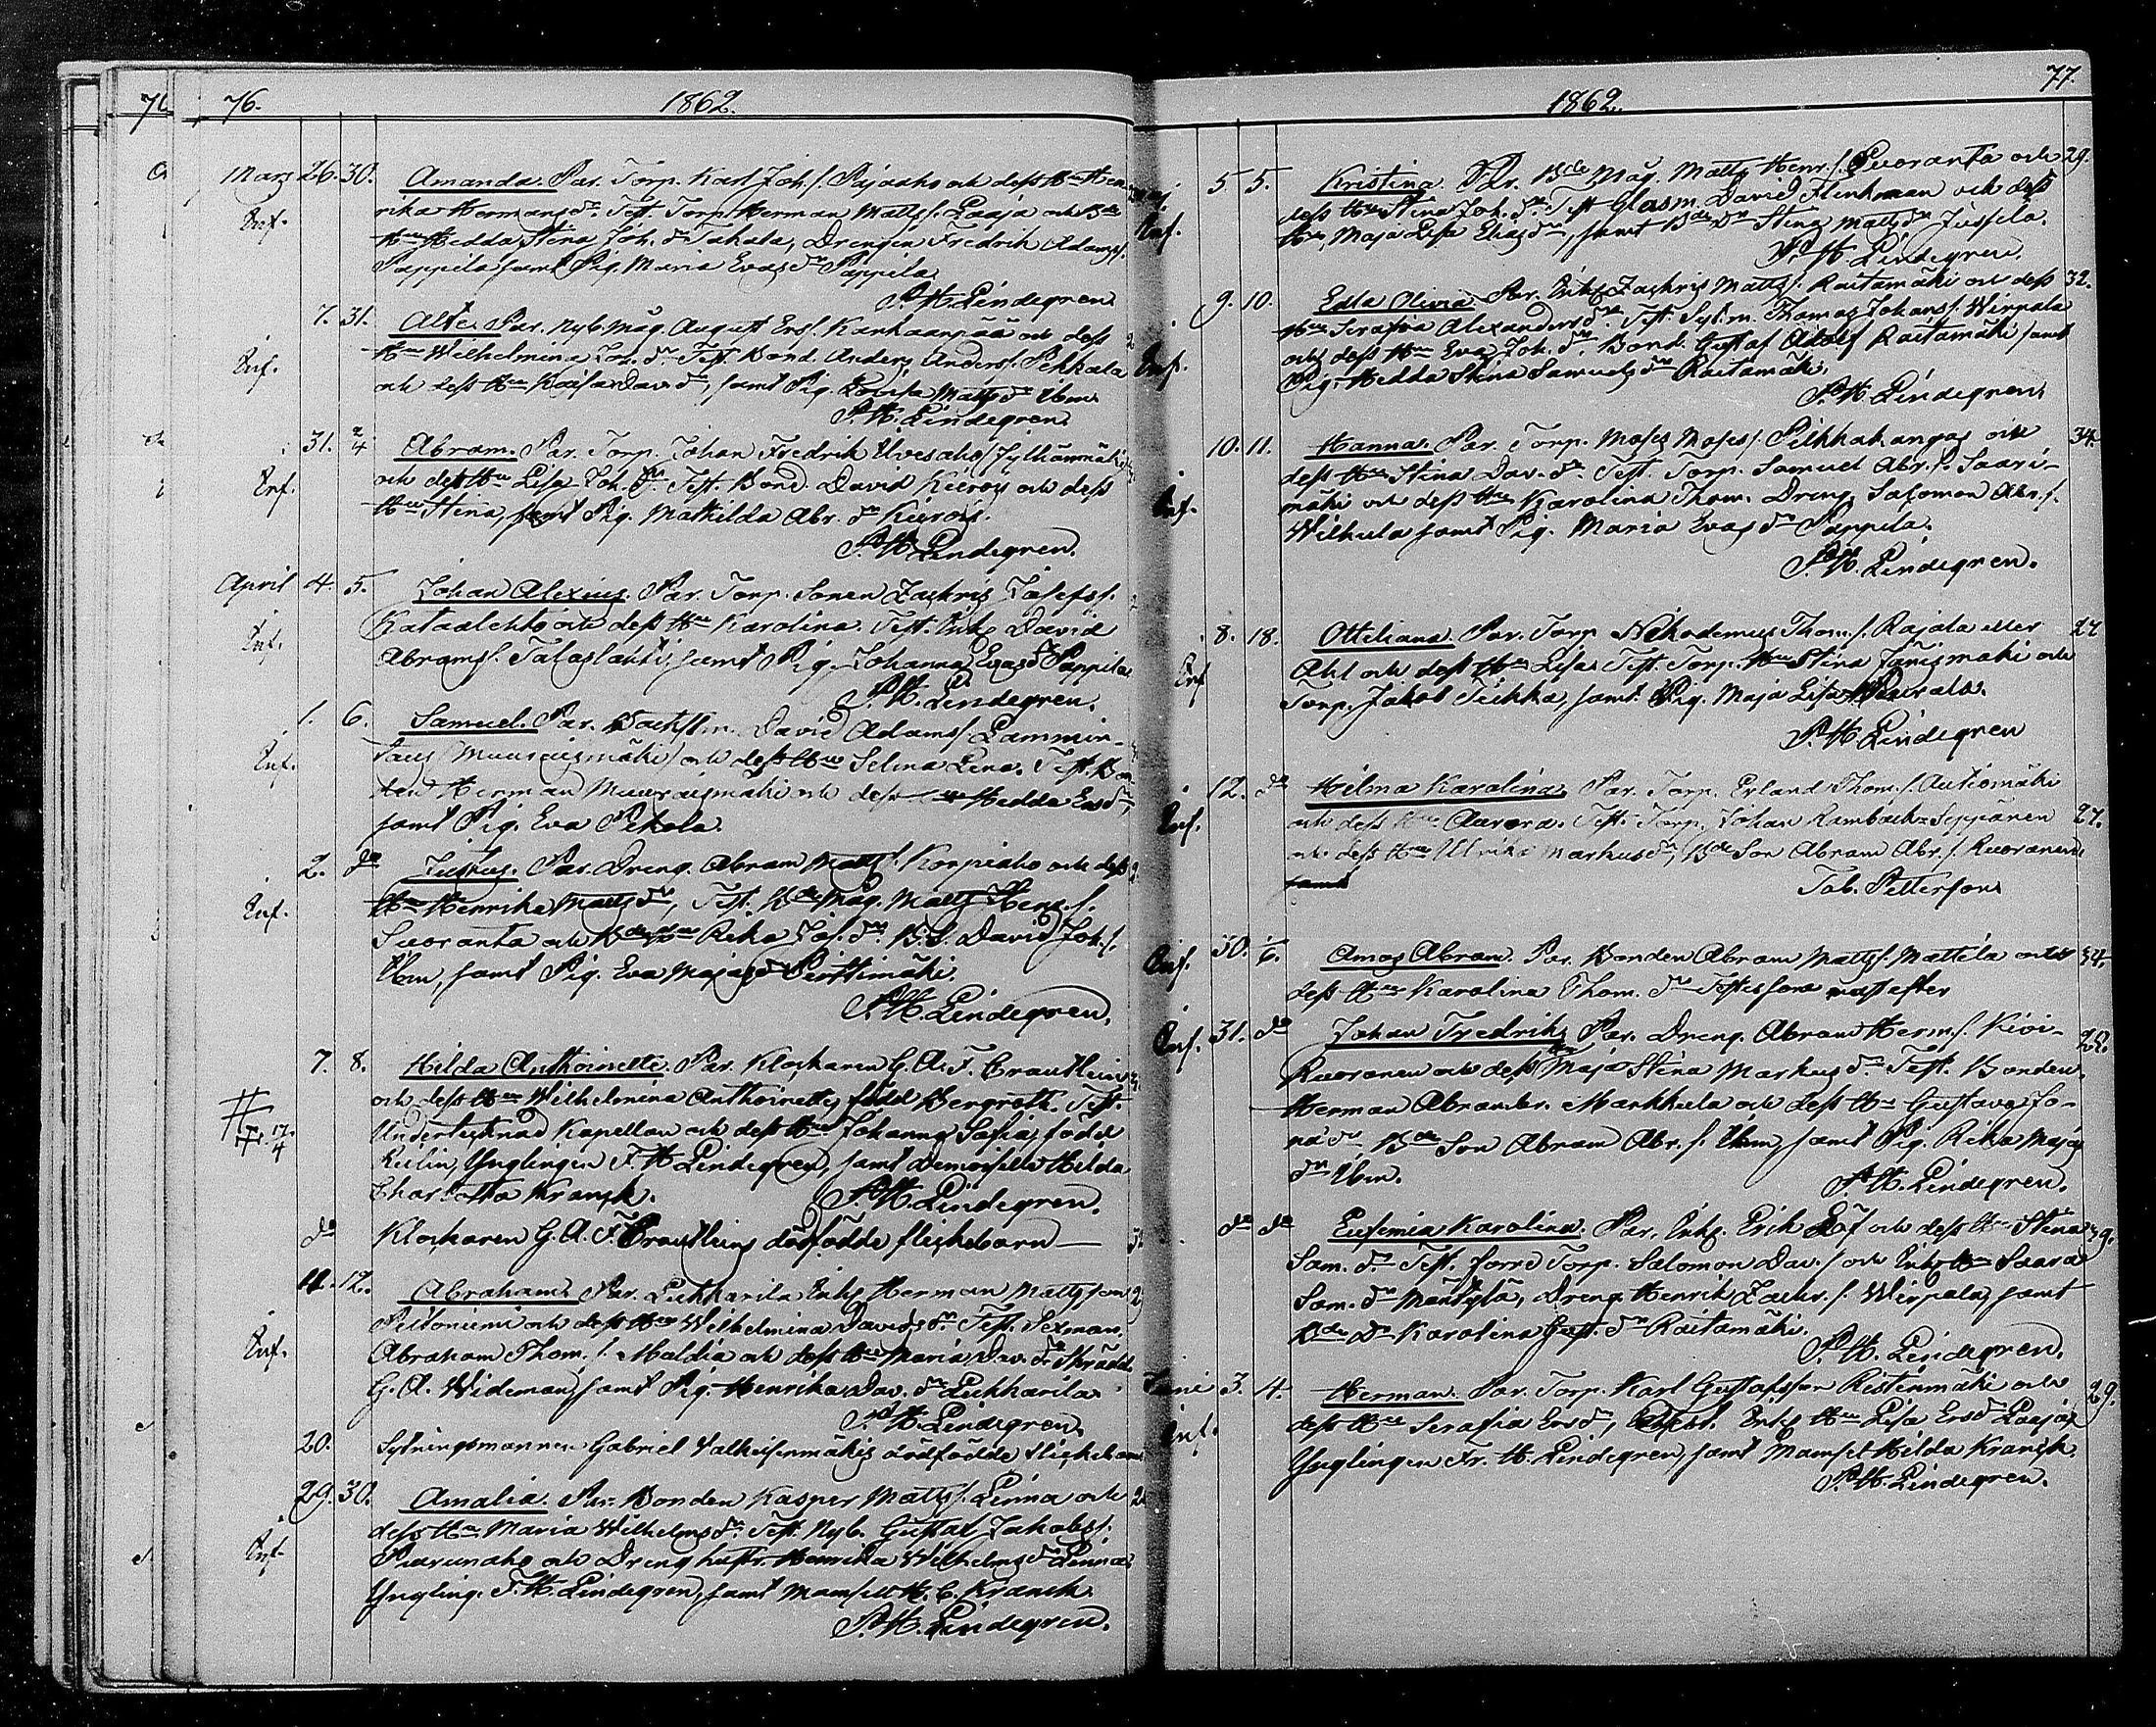 76. 1862.
Mars 26. 30. Amanda. Par. Torp. Karl Joh. s. Pajaaho och dess Hu Hen-
rika Hermansdr. Test. Torp. Herman Matts s. Laaja och Bde
Inf. Hu Hedda Stina Joh. dr Takala, Drengen Fredrik Adams s.
Pappila samt Pig. Maria Evasdr Pappila.
P. H. Lindegren.
7. 31. Par. Nyb. Måg. August Ers s. Kanhaanpää och dess
Hu Wilhelmina Joh. dr Test. Bond. Anders Anders s. Pekkala
Inf. och dess Hu Kajsa Davdr, samt Pig. Lovisa Mattsdr ibm
P. H. Lindegren.
31. 2/4 Abram. Par. Torp. Johan Fredrik Ilvesaho
Inf. och dess Hu Lisa Joh. dr Test. Bond. David Kierois och dess
Hu Stina, samt Pig. Mathilda Abr. dr Kierois.
P. H. Lindegren.
April 4. 5. Johan Alexius. Par. Torp. Sonen Zachris Josefs s.
Inf. Kataalehto och dess Hu Karolina. Test. Inh. David
Abrams s. Talaslahti, samt Pig. Johanna Evasdr Pappila
P. H. Lindegren.
1. 6. Samuel. Par. Backstm. David Adams s. Lammin-
Inf. taus / Muuraismäki / och dess Hu Selina Lena. Test. Bon-
den Herman Muuraismäki och dess Hu Hedda Ersdr,
samt Pig. Eva Pekola.
2. do Justus. Par. Dreng. Abram Matts s. Korpiaho och dess
Inf. Hu Henrika Mattsdr, Test. Bde Måg. Matts Henr. s.
Suoranta och Bde Hu Rika Jos. dr B. S. David Joh. s.
ibm, samt Pig. Eva Majasdr Pirttimäki.
P. H. Lindegren.
7. 8. Hilda Anthoinette. Par. Klockaren G. A. F. Brautlein
och dess Hu Wilhelmina Anthoinette, född Bergroth. Test.
17/4 Undertecknad Kapellan och dess Hu Johanna Sofia, född
Relin, Ynglingen F. H. Lindegren, samt Demoiselle Hilda
Charlotta Kranck. P. H. Lindegren.
do Klockaren G. A. F. Brautleins dödfödde flickebarn
11. 12. Abraham. Par. Lukkarila Inh. Herman Mattsson
Peltoniemi och dess Hu Wilhelmina Davidsdr. Test. Sexman.
Inf. Abraham Thom. s. Maldia och dess Hu Maria Dav. dr Skrädd.
G. A. Wideman, samt Pig. Henrika Dav. dr Lukkarila.
P. H. Lindegren
20. Sytningsmannen Gabriel Valkeisenmäkis dödfödde flickebarn
29. 30. Amalia. Par. Bonden Kasper Matts s. Linna och
dess Hu Maria Wilhelmsdr. Test. Nyb. Gustaf Jakobs s.
Inf. och Drenghustr. Henrika Wilhelmsdr Linna
Yngling. F. H. Lindegren, samt Mamsell H. C. Kranck.
P. H. Lindegren.
1862. 77.
Maj 5 5. Kristina. Par. Bde Måg. Matts Henr. s. Suoranta och 29.
Inf. dess Hu Stina Joh. dr. Test. Glasm. David Flinkman och dess
Hu, Maja Lisa Eliasdr, samt Bde Dr Stina Mattsdr Jussila.
P. H. Lindegren.
9. 10. Edla Olivia Par. Inh. Zachris Matts s. Raitamäki och dess 32.
Hu Serafia Alexandersdr. Test. Sytm. Thomas Johans s. Wirpala
Inf. och dess Hu Eva Joh. dr. Bond. Gustaf Adolf Raitamäki, samt
Pig. Hedda Stina Samuelsdr Raitamäki.
P. H. Lindegren.
10. 11. Hanna. Par. Torp. Moses Moses s. Pitkäkangas och 34.
dess Hu Stina Dav. dr Test. Torp. Samuel Abr. s. Saari-
Inf. mäki och dess Hu Karolina Thom. Dreng. Salomon Abr. s.
Wilkula samt Pig. Maria Evasdr Pappila.
P. H. Lindegren.
8. 18. Otteliana. Par. Torp. Nikodemus Thom. s. Rajala eller 27
Inf Ahl och dess Hu Lisa. Test. Torp. Hu Stina Jänismäki och
Torp. Jakob Tiikka, samt Pig. Maja Lisa
P. H. Lindegren
12. do Hilma Karolina. Par. Torp. Erland Thom. s. Autiomäki
Inf. och dess Hu Aurora. Test. Torp. Johan Rambäck Seppänen 27.
och dess Hu Ulrika Markusdr, Bde Son Abram Abr. s. Kuoranen,
samt Tob. Pettersson
Inf. 30. 1/6. Amos Abram. Par. Bonden Abram Matts s. Mattila och 34.
dess Hu Karolina Thom. dr
Inf. 31. do Johan Fredrik. Par. Dreng. Abram Herm. s. Kivi-
Kuoranen och dess Hu Maja Stina Markusdr. Test. Bonden
Herman Abramss. Markkula och dess Hu Gustava Jo-
nasdr, Bde Son Abram Abr. s. ibm, samt Pig. Rika Majas
dr ibm. P. H. Lindegren.
do do Eufemia Karolina. Par. Inh. Erik Löf och dess Hu Stina 39.
Sam. dr Test. förre Torp. Salomon Dav. s. och Inh. Hu Saara
Sam. dr Mäntylä, Dreng Henrik Zachr. s. Wirpala, samt
Bde Dr Karolina Gust. dr Raitamäki.
P. H. Lindegren.
Juni 3. 4. Herman. Par. Torp. Karl Gustafsson Ristinmäki och 29.
Inf. dess Hu Serafia Ersdr, Test. Inh. Hu Lisa Ersdr Laaja,
Ynglingen Fr. H. Lindegren, samt Mamsel Hilda Kranck.
P. H. Lindegren.